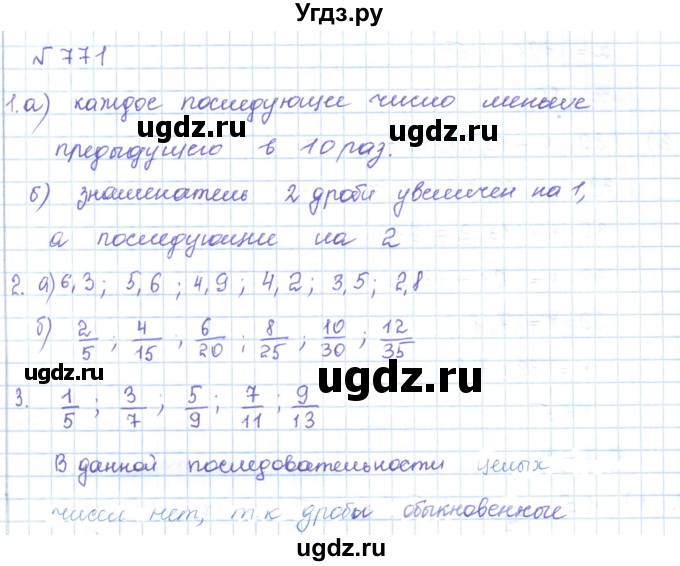 Угдз.ру
№771
1. а) каждое последующее число меньше
ugdz.ru ugdz.ru
предыдущего в 10 раз.
б) знаменатель 2 дроби увеличен на 1,
а последующие на 2
ugdz.ru
2. а) 6,3; 5,6; 4,9; 4,2; 3,5; 2,8
б) 2/5; 4/15; 6/20; 8/25; 10/30; 12/35
ugdz.ru ugdz.ru
3. 1/5; 3/7; 5/9; 7/11; 9/13
В данной последовательности целых
ugdz.ru
чисел нет, т.к дробы обыкновенные
ugdz.ru